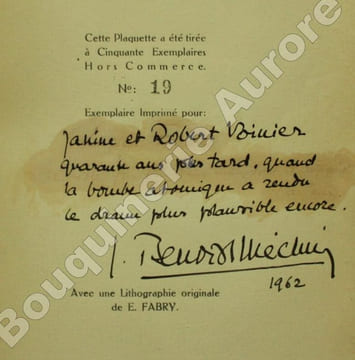 Cette Plaquette a été tirée
à Cinquante Exemplaires
Hors Commerce.
No: 19
Exemplaire Imprimé pour:
Janine et Robert Voinier
quarante ans plus tard, quand
la bombe atomique a rendu
le drame plus plausible encore.
J. Benoist Méchin
1962
Avec une Lithographie originale
de E. FABRY.
Bouquinerie Aurore